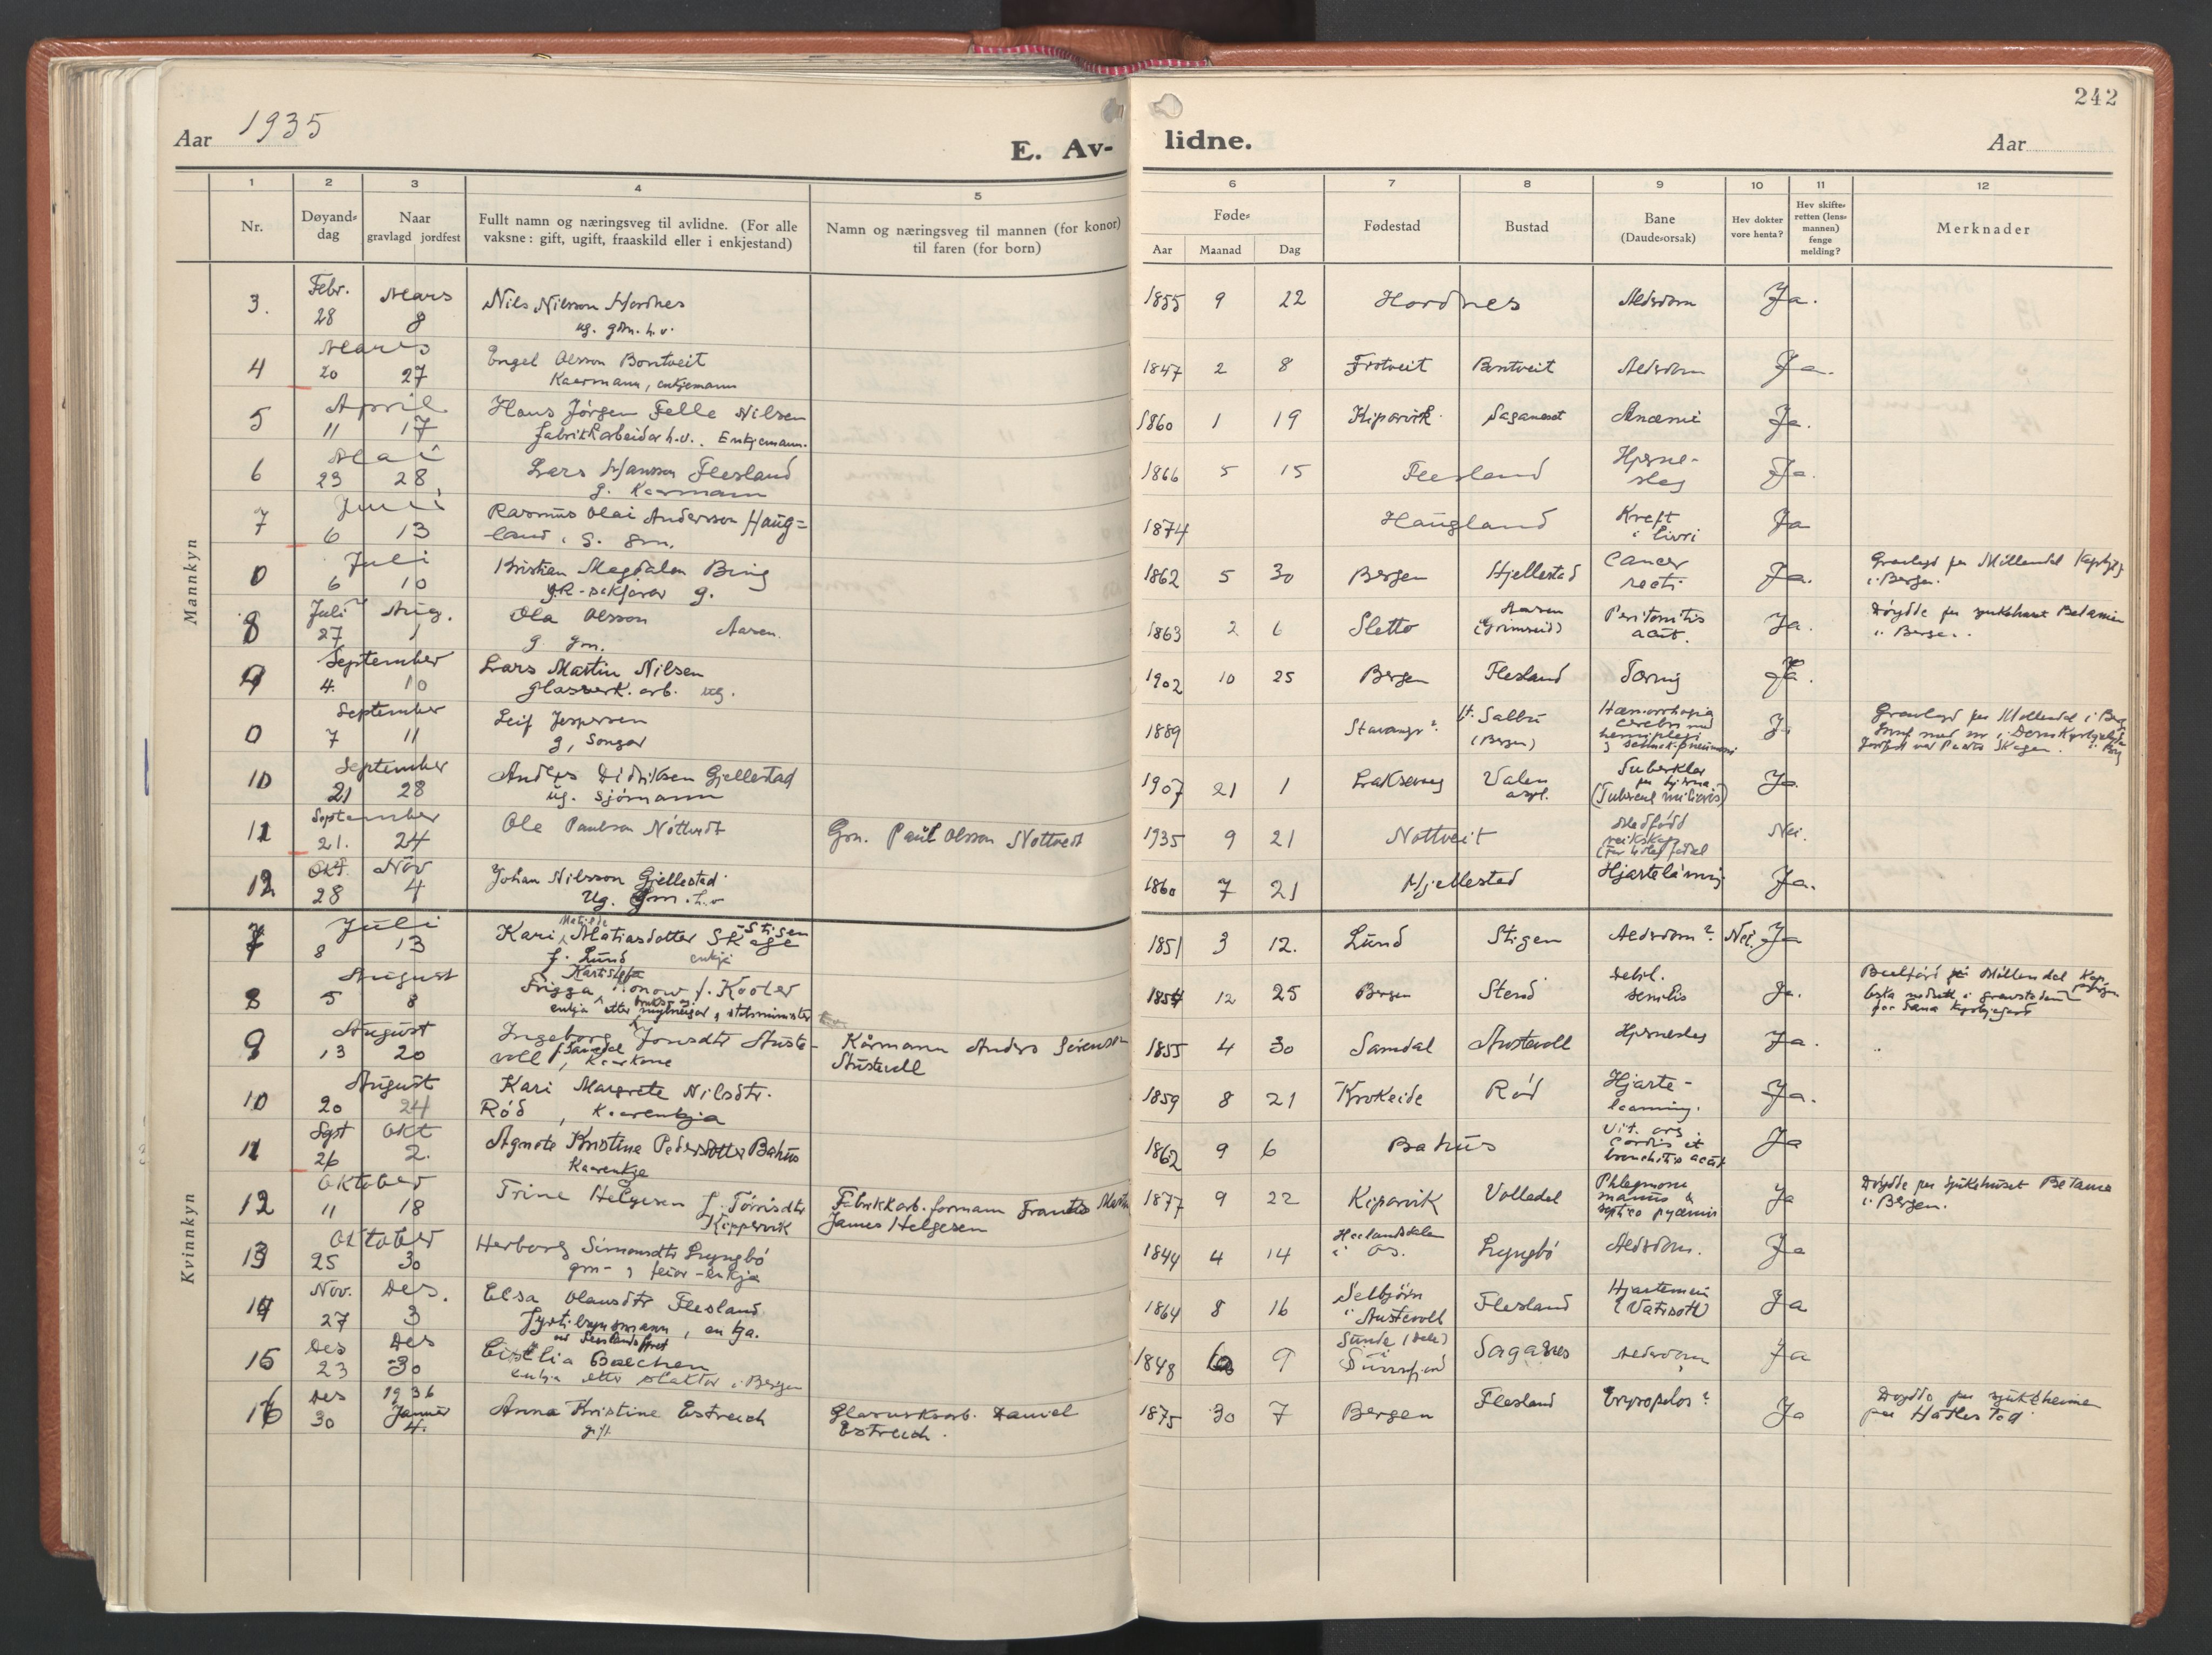 242
Aar 1935
E. Av-
lidne.
Aar
1 2 3 4 5 6 7 8 9 10 11 12
Nr.
Døyand-dag
Naar gravlagd jordfest
Fullt namn og næringsveg til avlidne. (For alle
vaksne: gift, ugift, fraaskild eller i enkjestand)
Namn og næringsveg til mannen (for konor)
til faren (for born)
Føde-
Aar Maanad Dag
Fødestad
Bustad
Bane
(Daude-orsak)
Hev dokter
vore henta?
Hev skifte-
retten (lens-
mannen)
fenge
melding?
Merknader
Mannkyn
3. Febr. 28 Mars 8 Nils Nilsson Hordnes
ug. gdm. h.v.
1855 9 22 Hordnes Aldrdom Ja.
4 Mars 20 27 Engel Olsson Bontveit
Kaarmann, enkjemann
1847 2 8 Frotveit Bontveit Aldrdom Ja.
5 April 11 17 Hans Jörgen Felle Nilsen
fabrikkarbeidar h.v. Enkjemann.
1860 1 19 Kiparvik Saganeset Anæmi Ja.
6 Mai 23 28 Lars Flesland
g. Kaarmann
1866 5 15 Flesland Hjerne-
slag Ja.
7 Juni 6 13 Rasmus Olai Andersson Haug=
land, g. gm.
1874 Haugland Kreft
i livri Ja
0 Juli 6 10 Kristian Magdalon Bing
g.
1862 5 30 Bergen Hjellestad Cancer
recti Ja.
Gravlagd paa Möllendal
i Bergen.
8 Juli 27 Aug. 1 Ola Olsson Aasen.
g gm.
1863 2 6 Sletto Aasen
(Grimseid) Peritonitis
acut. Ja.
Döydde paa sjukehuset Betanien
i Bergen.
9 September 4. 10 Lars Martin Nilsen
glasverk. arb. ug.
1902 10 25 Bergen Flesland Tæring Ja.
0 September 7 11 Leif Jespersen
g, Songar
1889 Stavanger? H. Salbu
(Bergen) Hæmorrhagia
cerebri med
hemiplegi
Ja
Gravlagd paa Möllendal i Berg
10 September 21 28 Anders Didriksen Gjellestad
ug. sjömann
1907 21 1 Laksevaag Valen
asyl. Tuberklar
paa hjerna
(Tubercul miliaris) Ja.
11 September 21. 24 Ole Paulson Nöttveit
Gm. Paul Olsson Nottveit
1935 9 21 Nottveit Medfödd
veikskap
Nei.
12 Okt. 28 Nov 4 Johan Nilsson Gjellestad
Ug. Gm. h.v
1860 7 21 Hjellestad Hjartelâming Ja.
Kvinnkyn
7 Juli 8 13 Kari Matilde Matiasdotter Skage - Stigen
f. Lund enkje
1851 3 12. Lund Stigen Aldrdom? Nei. Ja
8 August 5 8 Frigga Konow f. Kooter
enkja etter
1854 12 25 Bergen Stend Debil.
senilis Ja.
9 August 13 20 Ingeborg Jonsdtr Auste-
voll f. Samdal, Kaarkone
Kårmann Anders Seiensson
Austevoll
1855 4 30 Samdal Austevoll Hjerneslag Ja.
10 August 20 24 Kari Margrete Nilsdtr.
Röd, Kaarenkja
1859 8 21 Krokeide Röd Hjarte-
laaming. Ja.
11 Sept 26 Okt 2. Agnote Kristina Pedersdotter Bahus
Kaarenkje
1862 9 6 Bahus Vit. org.
cordis et
bronchitis acut Ja
12 Oktober 11 18 Trine Helgesen f. Törrisdtr
Kippervik
Fabrikkarb. formann Frants Martin
James Helgesen
1877 9 22 Kiparvik Volledal Phlegmone
manus &
septico pyæmis Ja
Döydde paa sjukehuset Betania
i Bergen.
13 Oktober 25 30 Herborg Simonsdtr Lyngbö
gm- enkja
1844 4 14 i Os. Lyngbö Aldrdom. Ja
14 Nov. 27 Des. 3 Elsa Olausdtr Flesland
enkja.
1864 8 16 Selbjörn
i Austevoll Flesland Hjartemein
(Vatrsott) Ja
15 Des 23 Des 30 Baechen
enkja etter slaktar i Bergen
1848 9 Sunde
i Sunnfjord Saganes Aldrdom Ja
16 Des 30 1936 Januar 4. Anna Kristine Estreich
gift
Glasverksarb. Daniel
Estreich.
1875 30 7 Bergen Flesland Erysipelas? Ja
Döydde paa sjukeheimen
paa Hatlestad